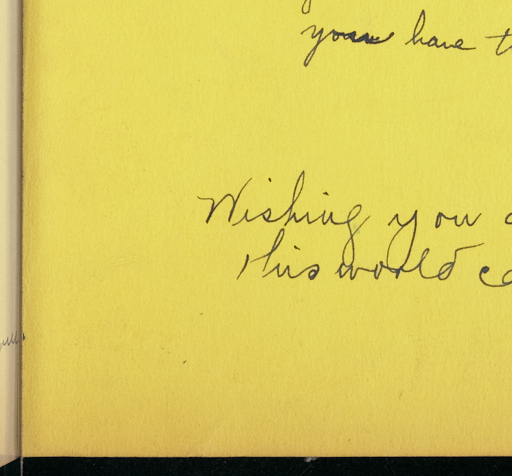 you have t
Wishing you a
this world ca